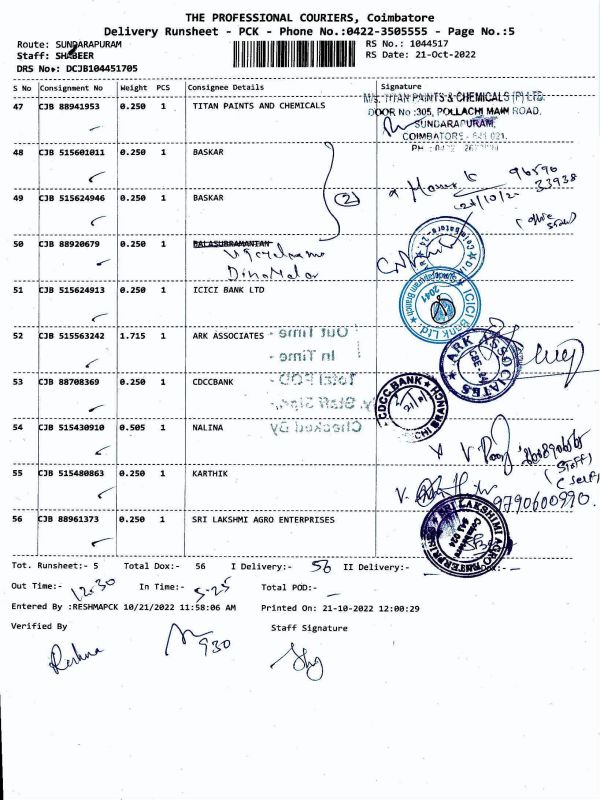 THE PROFESSIONAL COURIERS, Coimbatore
Delivery Runsheet - PCK - Phone No.:0422-3505555 - Page No.:5
Route: SUNDARAPURAM
RS No.: 1044517
Staff: SHABEER
RS Date: 21-Oct-2022
DRS No.: DCJB104451705
S No Consignment No Weight PCS Consignee Details Signature
47 CJB 88941953 0.250 1 TITAN PAINTS AND CHEMICALS
M/s. TITAN PAINTS & CHEMICALS (P) LTD.
DOOR No :305, POLLACHI MAIN ROAD,
SUNDARAPURAM,
COIMBATORE - 641 021.
48 CJB 515601011 0.250 1 BASKAR
49 CJB 515624946 0.250 1 BASKAR
2
96590
33938
50 CJB 88920679 0.250 1 BALASUBRAMANIAN
DinaMalar
51 CJB 515624913 0.250 1 ICICI BANK LTD
ICICI Bank Ltd.
Sundarapuram Branch
2041
52 CJB 515563242 1.715 1 ARK ASSOCIATES
Out Time
In Time
Total POD
Checked By
ARK ASSOCIATES
CBE - 24
53 CJB 88708369 0.250 1 CDCCBANK
CDCC.BANK
54 CJB 515430910 0.505 1 NALINA
(Staff)
55 CJB 515480863 0.250 1 KARTHIK
(self)
9790600990.
56 CJB 88961373 0.250 1 SRI LAKSHMI AGRO ENTERPRISES
SRI LAKSHMI AGRO ENTERPRISES
Tot. Runsheet:- 5 Total Dox:- 56 I Delivery:- 56 II Delivery:-
Out Time:- 12.30 In Time:- 5-25 Total POD:-
Entered By :RESHMAPCK 10/21/2022 11:58:06 AM Printed On: 21-10-2022 12:00:29
Verified By Staff Signature
Reshma
930